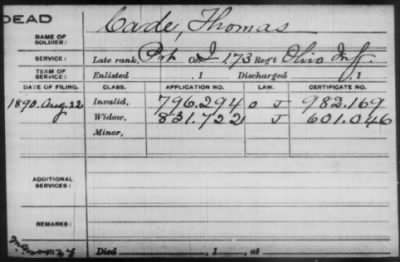 DEAD
NAME OF SOLDIER: Cade, Thomas
SERVICE: Late rank, Pvt Co. I 173 Reg't Ohio Inf.
TERM OF SERVICE: Enlisted , 1 Discharged , 1
DATE OF FILING. CLASS. APPLICATION NO. LAW. CERTIFICATE NO.
1890. Aug. 22 Invalid, 796.294 O J 982.169
Widow, 831.722 J 601.046
Minor,
ADDITIONAL SERVICES:
REMARKS:
Died , 1 , at